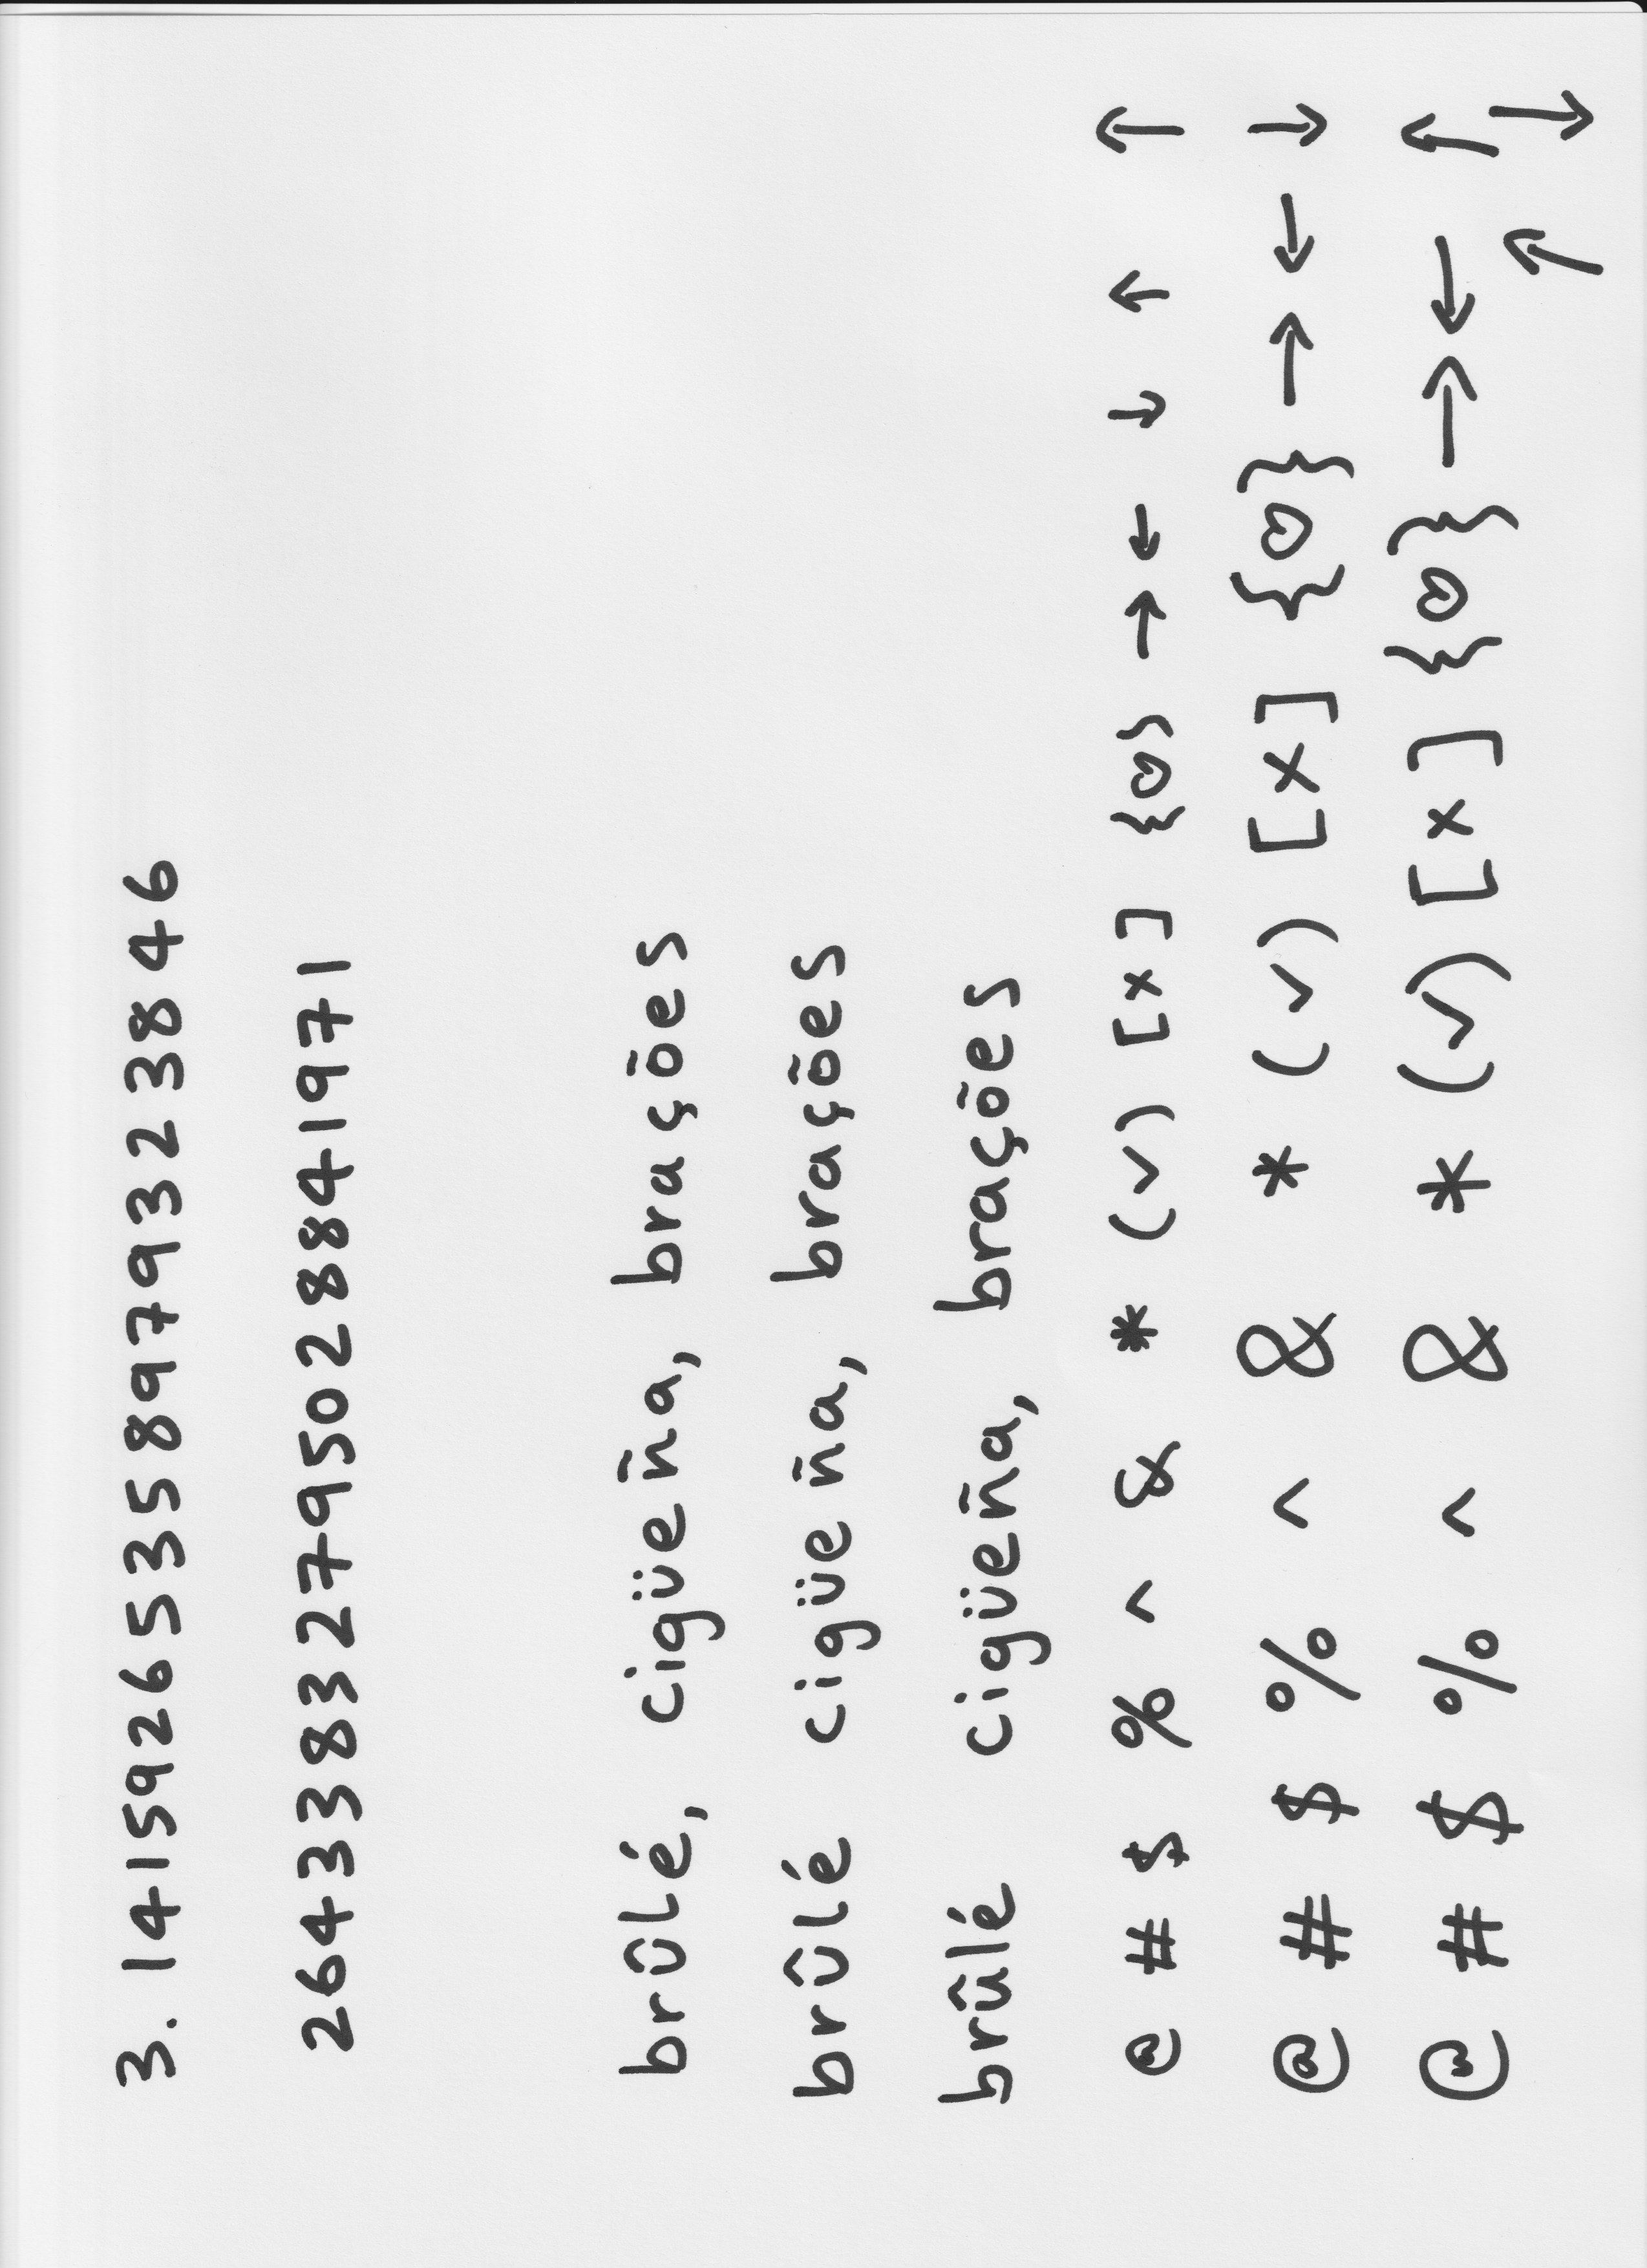 3. 14159265358979323846
264338327950288841971
brûlé, cigüeña, brações
brûlé cigüeña, brações
brûlé cigüeña, brações
@ # $ % ^ & * (✓) [x] {♡} → ← ↓ ↑ ↑
@ # $ % ^ & * (✓) [x] {♡} → ← ↓
@ # $ % ^ & * (✓) [x] {♡} → ← ↑
↑ ↓